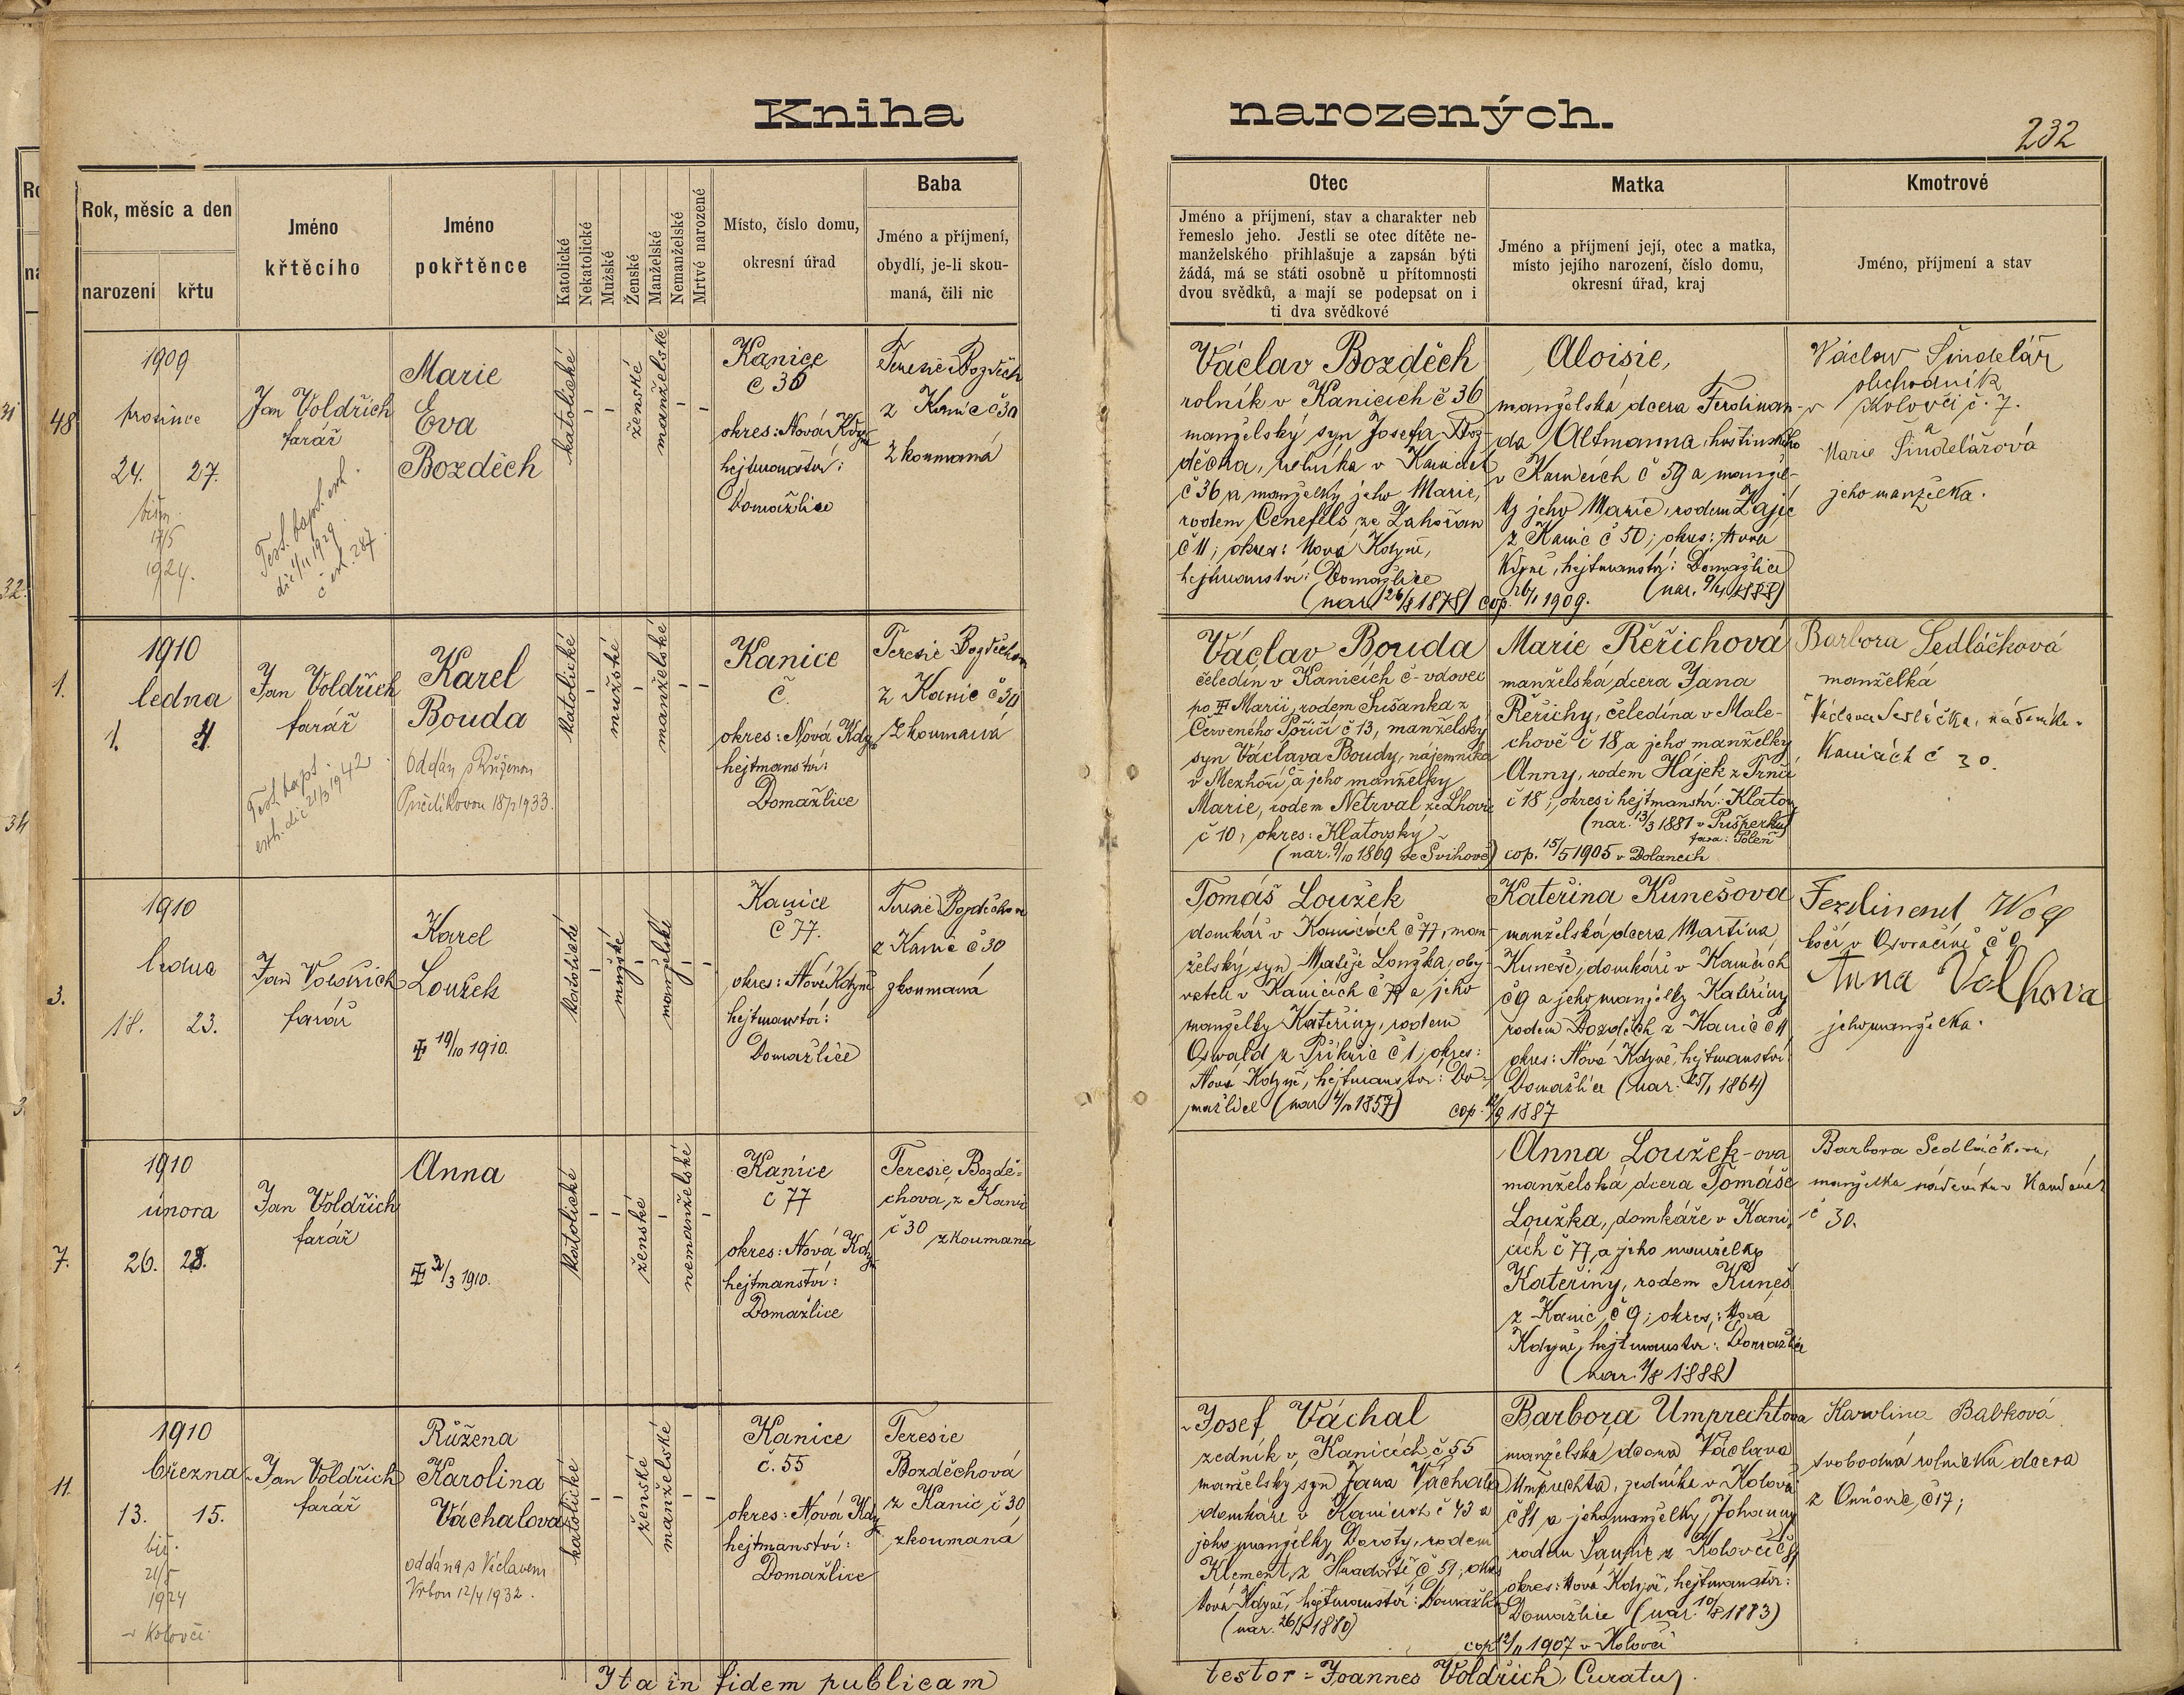 Kniha narozených.
232
Rok, měsíc a den
narození křtu
Jméno
křtěcího
Jméno
pokřtěnce
Katolické
Nekatolické
Mužské
Ženské
Manželské
Nemanželské
Mrtvé narozené
Místo, číslo domu,
okresní úřad
Baba
Jméno a příjmení,
obydlí, je-li skou-
maná, čili nic
Otec
Jméno a příjmení, stav a charakter neb
řemeslo jeho. Jestli se otec dítěte ne-
manželského přihlašuje a zapsán býti
žádá, má se státi osobně u přítomnosti
dvou svědků, a mají se podepsat on i
ti dva svědkové
Matka
Jméno a příjmení její, otec a matka,
místo jejího narození, číslo domu,
okresní úřad, kraj
Kmotrové
Jméno, příjmení a stav
48
1909
prosince
24. 27.
biřm.
17/5
1924.
Jan Voldřich
farář
Test. bapt. exh.
die 4/11 1929.
č ex. 287.
Marie
Eva
Bozděch
katolické
ženské
manželské
Kanice
č 36
okres: Nová Kdyň
hejtmanství:
Domažlice
Teresie Bozděch
z Kanic č 30
zkoumaná
Václav Bozděch
rolník v Kanicích č 36
manželský syn Josefa Boz-
děcha, rolníka v Kanicích
č 36 a manželky jeho Marie,
rodem Cenefels ze Zahořan
č 11; okres: Nová Kdyně,
hejtmanství: Domažlice
(nar. 26/8 1878) cop. 26/1 1909.
Aloisie,
manželská dcera Ferdinan-
da Altmanna, hostinského
v Kanicích č 59 a manžel-
ky jeho Marie, rodem Zajíc
z Kanic č 50; okres: Nová
Kdyně, hejtmanství: Domažlice
(nar. 9/4 1888)
Václav Šindelář
obchodník
v Kolovči č. 7.
a
Marie Šindelářová
jeho manželka.
1.
1910
ledna
1. 4.
Jan Voldřich
farář
Test. bapt.
exh. die 21/3 1942
Karel
Bouda
Oddán s Růženou
18/7 1933.
katolické
mužské
manželské
Kanice
č.
okres: Nová Kdyň
hejtmanství:
Domažlice
Teresie Bozděchova
z Kanic č 30
zkoumaná
Václav Bouda
čeledín v Kanicích č - vdovec
po Marii, rodem Sušanka z
Červeného Poříčí č 13, manželský
syn Václava Boudy, nájemníka
v Mezhoří a jeho manželky
Marie, rodem Netrval ze Lhovic
č 10, okres: Klatovský
(nar. 9/10 1869 ve Švihově) cop. 15/5 1905 v Dolanech
Marie Řeřichová
manželská dcera Jana
Řeřichy, čeledína v Male-
chově č 18, a jeho manželky
Anny, rodem Hájek z Trnčí
č 18; okres i hejtmanství: Klatovy
(nar. 13/3 1881 v Pušperku
fara: Poleň
Barbora Sedláčková
manželká
Václava Sedláčka, nádeníka v
Kanicích č 30.
3.
1910
ledna
18. 23.
Jan Voldřich
farář
Karel
Loužek
19/10 1910.
katolické
mužské
manželské
Kanice
č 77.
okres: Nová Kdyně
hejtmanství:
Domažlice
Teresie Bozděchova
z Kanic č 30
zkoumaná
Tomáš Loužek
domkář v Kanicích č 77, man-
želský syn Matěje Loužka, oby-
vatele v Kanicích č 77 a jeho
manželky Kateřiny, rodem
Oswald z Příkřic č 1; okres:
Nová Kdyně, hejtmanství: Do-
mažlice (nar. 4/10 1857) cop. 12/9 1887
Kateřina Kunešova
manželská dcera Martina
Kuneše, domkáře v Kanicích
č 9 a jeho manželky Kateřiny
rodem Bozděch z Kanic č 11
okres: Nová Kdyně, hejtmanství:
Domažlice (nar. 25/1 1864)
Ferdinand Wolf
kočí v Osvračíně č 9
Anna Volfova
jeho manželka.
7.
1910
února
26. 28.
Jan Voldřich
farář
Anna
2/3 1910.
katolické
ženské
nemanželské
Kanice
č 77
okres: Nová Kdyň
hejtmanství:
Domažlice
Teresie Bozdě-
chova, z Kanic
č 30 zkoumaná
Anna Loužek-ova
manželská dcera Tomáše
Loužka, domkáře v Kani-
cích č 77, a jeho manželky
Kateřiny, rodem Kuneš
z Kanic č 9; okres: Nová
Kdyně, hejtmanství: Domažlice
(nar. 4/8 1888)
Barbora Sedláčkova,
manželka nádeníka v Kanicích
č 30.
11.
1910
března
13. 15.
biř.
21/5
1924
v Kolovči
Jan Voldřich
farář
Růžena
Karolina
Váchalova
oddána s Václavem
Vrbou 12/4 1932.
katolické
ženské
manželské
Kanice
č. 55
okres: Nová Kdy
hejtmanství:
Domažlice
Teresie
Bozděchová
z Kanic č 30
zkoumaná
Josef Váchal
zedník v Kanicích č 55
manželský syn Jana Váchala
domkáře v Kanicích č 43 a
jeho manželky Doroty, rodem
Klement z Hradiště č 51, okres
Nová Kdyně, hejtmanství: Domažlice
(nar. 26/5 1880)
cop 12/11 1907 v Kolovči
Barbora Umprechtova
manželská dcera Václava
Umprechta, zedníka v Kolovči
č 81 a jeho manželky Johanny
rodem z Kolovče č 81
okres: Nová Kdyně, hejtmanství:
Domažlice (nar. 10/8 1883)
Karolina Babková
svobodná rolnická dcera
z č 17;
Ita in fidem publicam testor = Joannes Voldřich, Curatus.